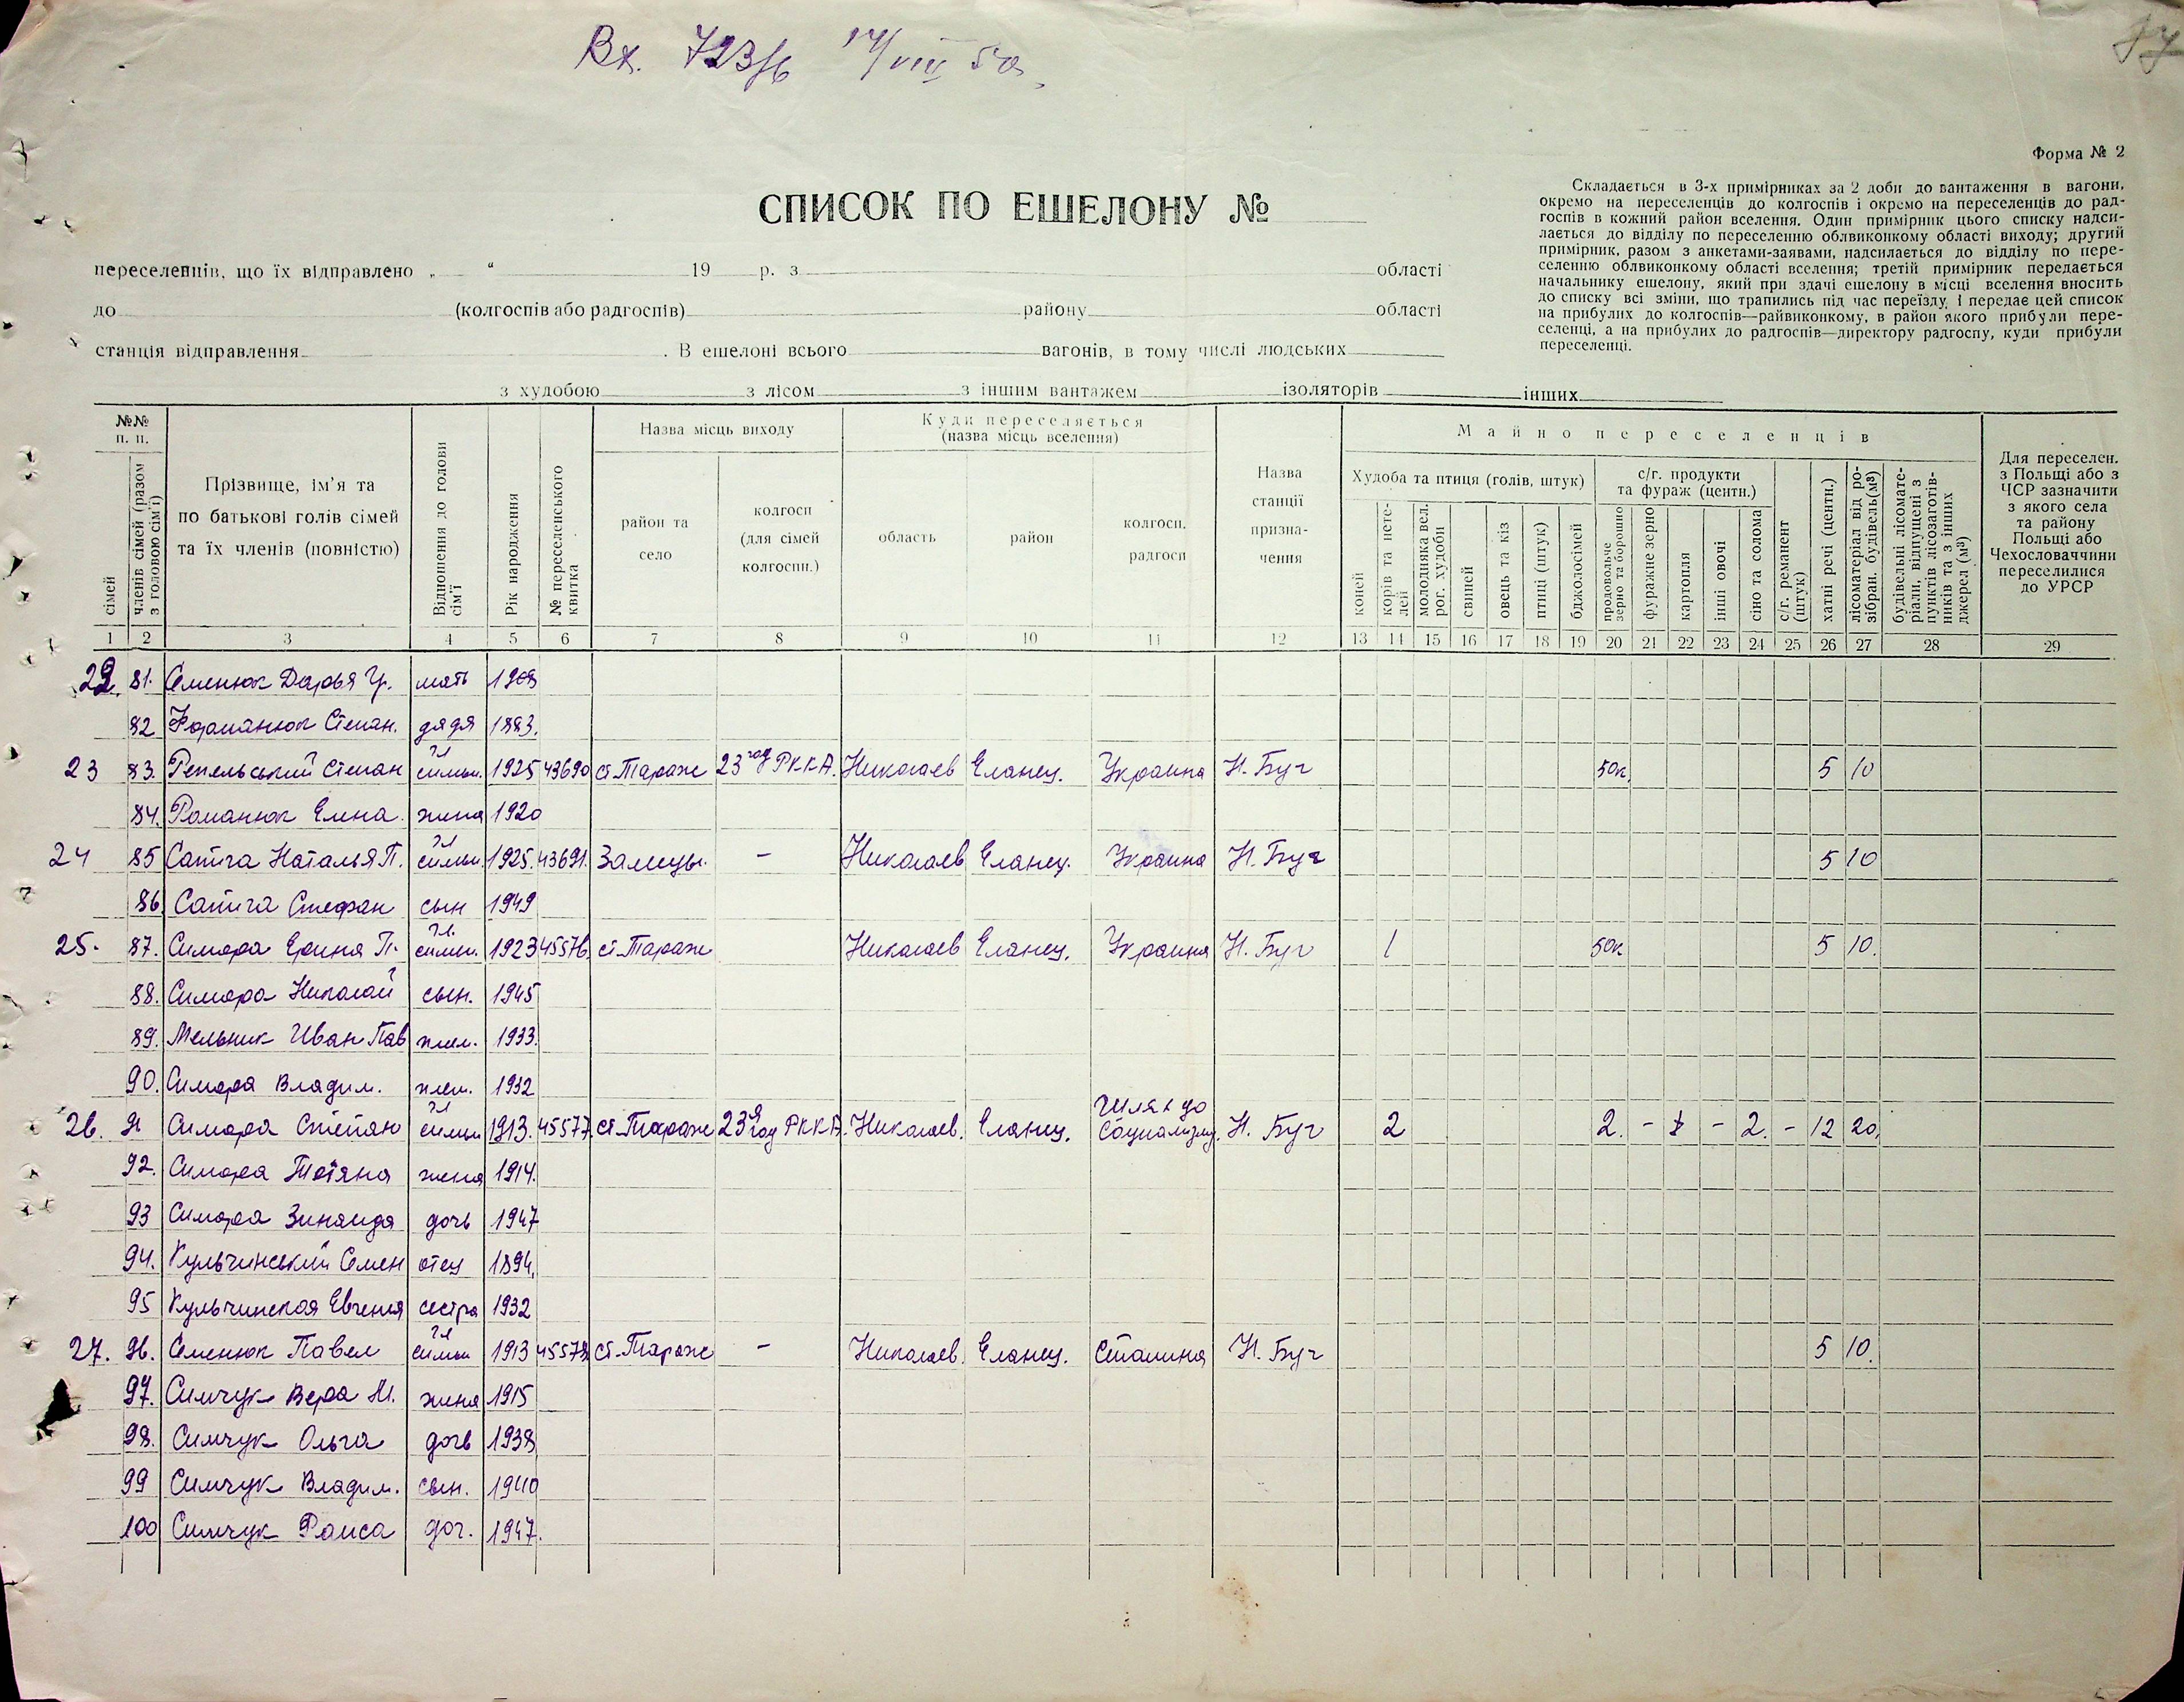 Вх. 723/6 14/VIII 50
Форма № 2
СПИСОК ПО ЕШЕЛОНУ №
Складається в 3-х примірниках за 2 доби до вантаження в вагони,
окремо на переселенців до колгоспів і окремо на переселенців до рад-
госпів в кожний район вселення. Один примірник цього списку надси-
лається до відділу по переселенню облвиконкому області виходу; другий
примірник, разом з анкетами-заявами, надсилається до відділу по пере-
селенню облвиконкому області вселення; третій примірник передається
начальнику ешелону, який при здачі ешелону в місці вселення вносить
до списку всі зміни, що трапились під час переїзду, і передає цей список
на прибулих до колгоспів—райвиконкому, в район якого прибули пере-
селенці, а на прибулих до радгоспів—директору радгоспу, куди прибули
переселенці.
переселенців, що їх відправлено „ “ 19 р. з області
до (колгоспів або радгоспів) району області
станція відправлення . В ешелоні всього вагонів, в тому числі людських
з худобою з лісом з іншим вантажем ізоляторів інших
№№ п. п.
сімей
членів сімей (разом з головою сім'ї)
Прізвище, ім'я та
по батькові голів сімей
та їх членів (повністю)
Відношення до голови сім'ї
Рік народження
№ переселенського квитка
Назва місць виходу
район та
село
колгосп
(для сімей
колгоспн.)
Куди переселяється
(назва місць вселення)
область
район
колгосп,
радгосп
Назва
станції
призна-
чення
Майно переселенців
Худоба та птиця (голів, штук)
коней
корів та нете-
лей
молодняка вел.
рог. худоби
свиней
овець та кіз
птиці (штук)
бджолосімей
с/г. продукти
та фураж (центн.)
продовольче
зерно та борошно
фуражне зерно
картопля
інші овочі
сіно та солома
с/г. реманент
(штук)
хатні речі (центн.)
лісоматеріал від ро-
зібран. будівель(м³)
будівельні лісомате-
ріали, відпущені з
пунктів лісозаготів-
ників та з інших
джерел (м³)
Для переселен.
з Польщі або з
ЧСР зазначити
з якого села
та району
Польщі або
Чехословаччини
переселилися
до УРСР
1 2 3 4 5 6 7 8 9 10 11 12 13 14 15 16 17 18 19 20 21 22 23 24 25 26 27 28 29
22. 81. Семенюк Дарья Г. мать 1908
82 Форманюк Степан. дядя 1883.
23 83. Репельський Степан гл семьи. 1925 43690 ст. Тараж 23 год РККА. Николаев Еланец. Украина Н. Буг 50к. 5 10
84. Романюк Елена. жена 1920
24 85 Сапига Наталья П. гл семьи. 1925. 43691. - Николаев Еланец. Украина Н. Буг 5 10
86. Сапига Стефан сын 1949
25. 87. Симора Ерина П. гл. семьи. 1923 45576. ст. Тараж Николаев Еланец. Украина Н. Буг 1 50к 5 10.
88. Симора Николай сын. 1945
89. Мельник Иван Пав плем. 1933.
90. Симора Владим. плем. 1932
26. 91 Симора Степан гл семьи 1913. 45577. ст. Тараж 23й год РККА. Николаев. Еланец. Шлях до Социализму. Н. Буг 2 2. - - 2. - 12 20.
92. Симора Тотяна жена 1914.
93 Симора Зинаида дочь 1947
94. Кульчинський Семен отец 1894.
95 Кульчинская Евгения сестра 1932
27. 96. Семенюк Павел гл семьи 1913 45578 ст. Тараж - Николаев. Еланец. Сталина Н. Буг 5 10.
97. Симчук Вера М. жена 1915
98. Симчук Ольга дочь 1938
99 Симчук Владим. сын. 1940
100 Симчук Раиса доч. 1947.